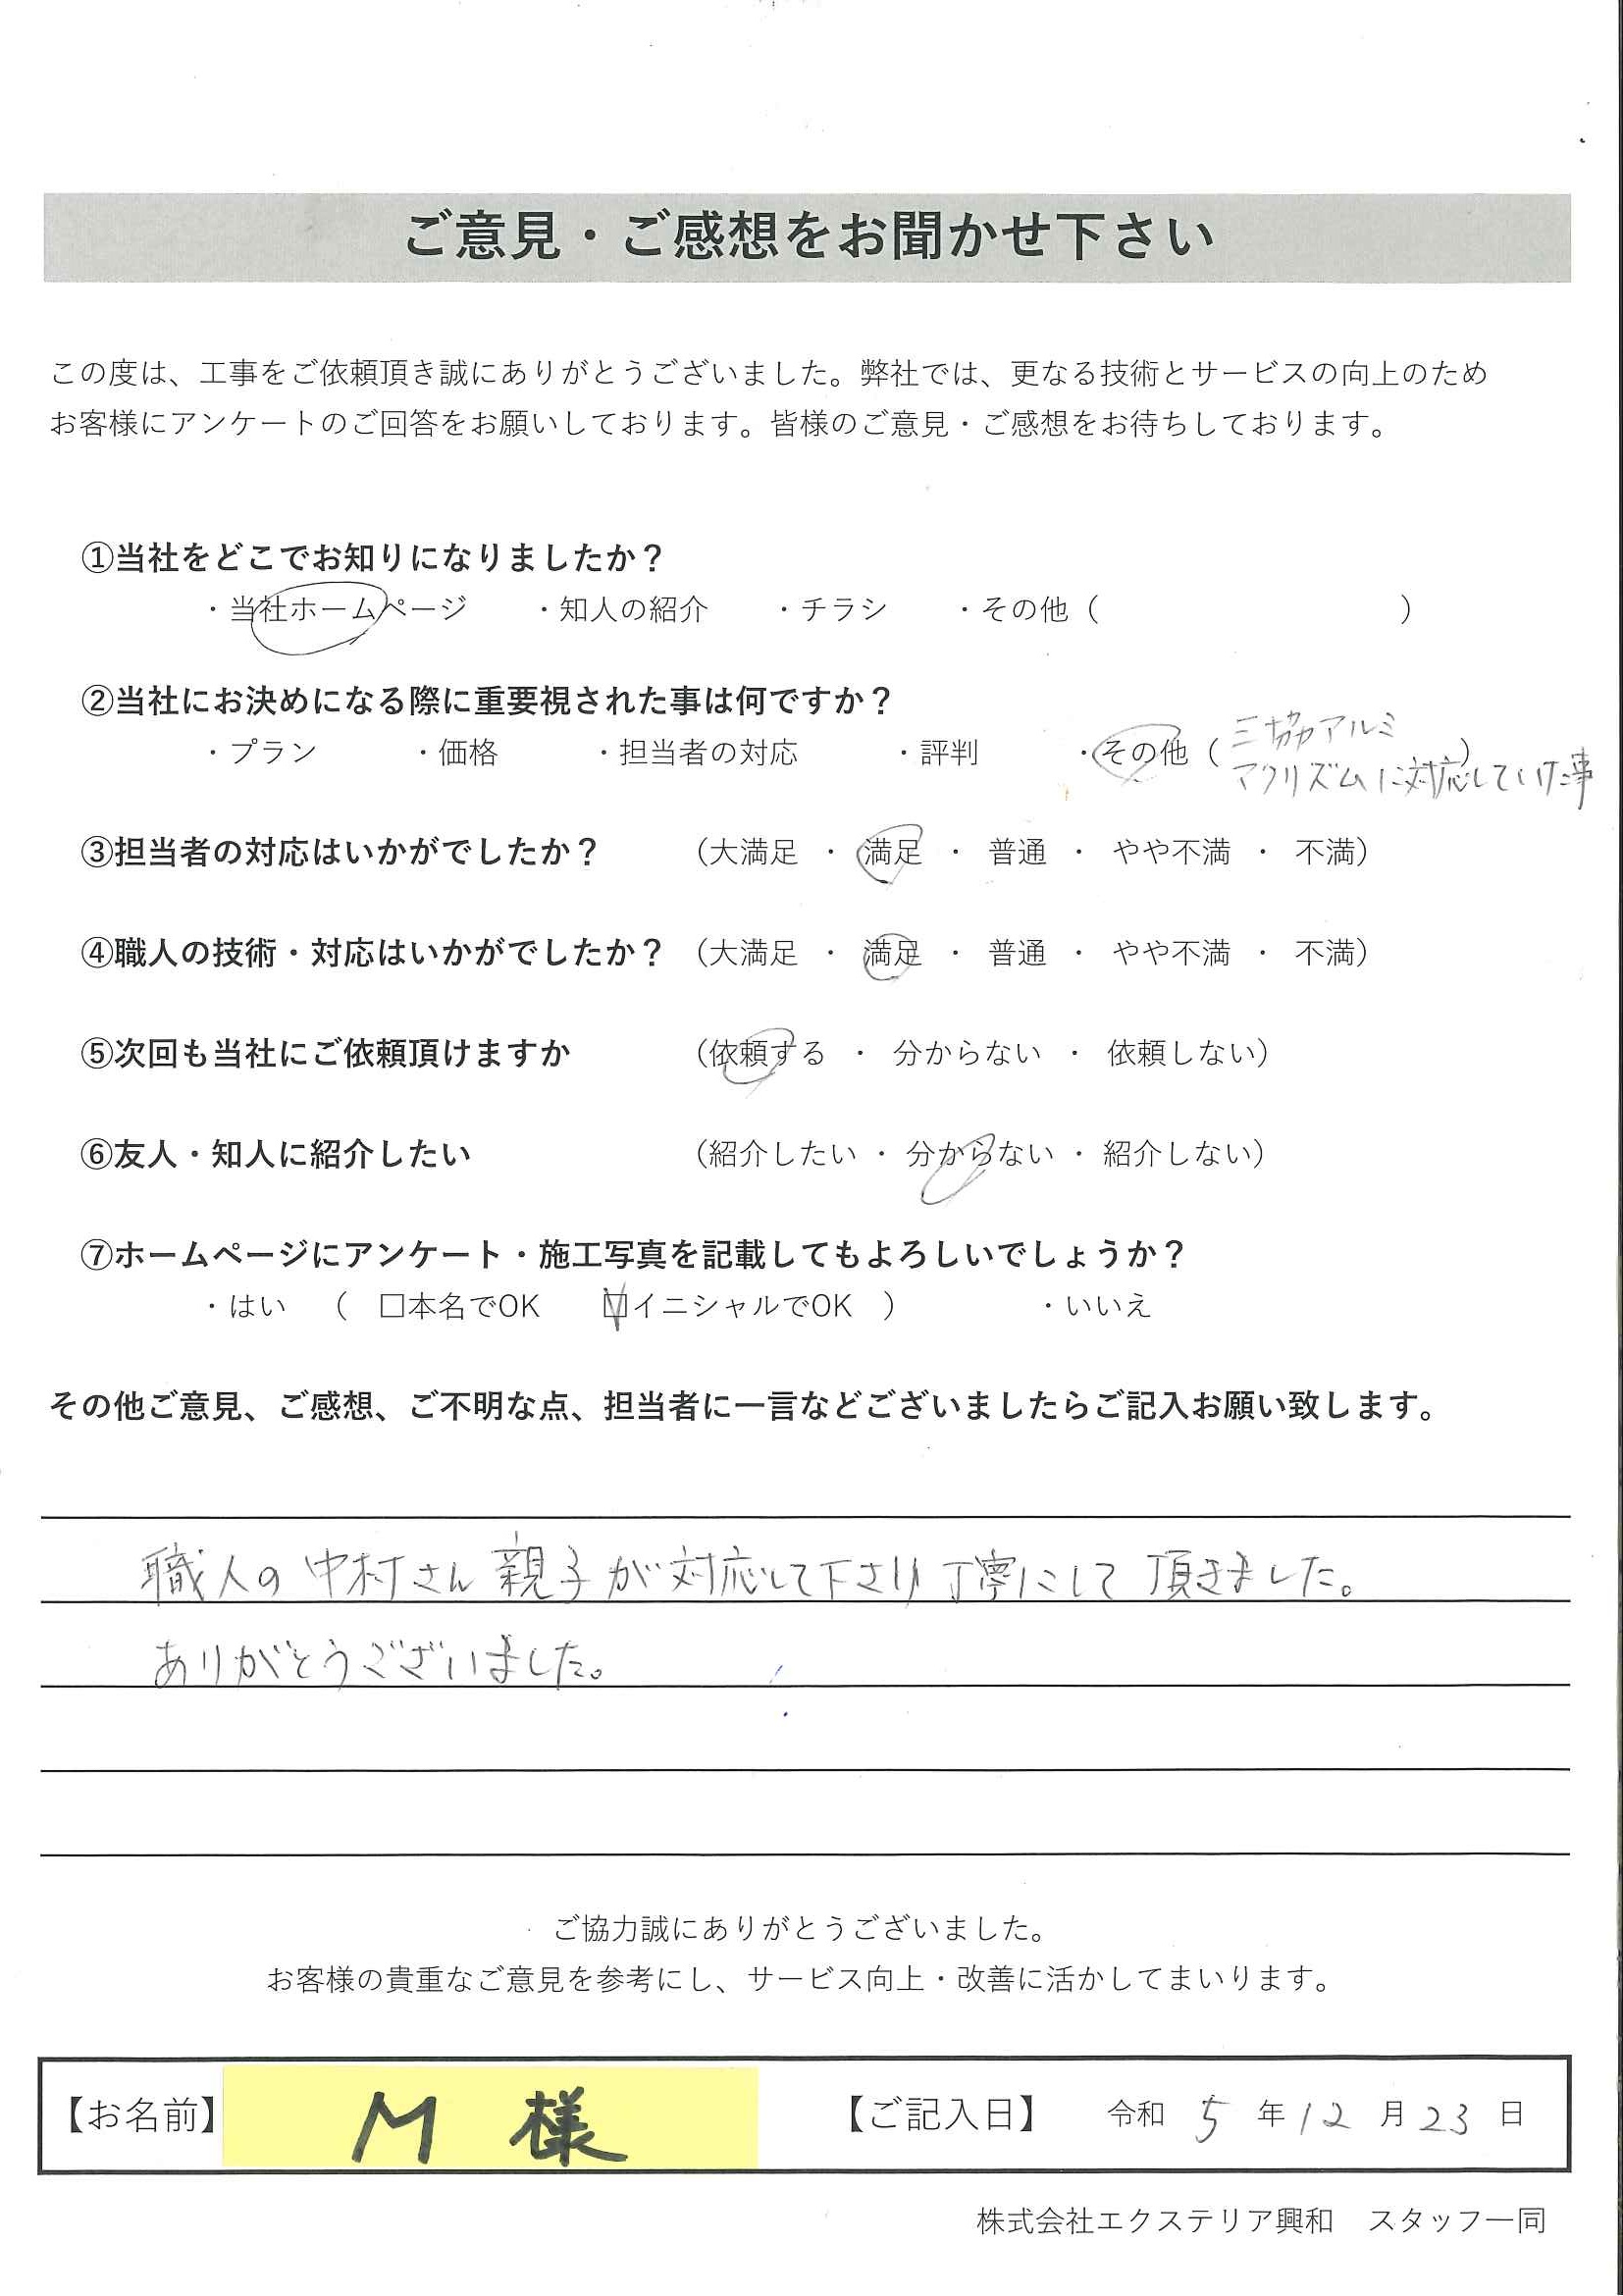 ご意見・ご感想をお聞かせ下さい
この度は、工事をご依頼頂き誠にありがとうございました。弊社では、更なる技術とサービスの向上のため
お客様にアンケートのご回答をお願いしております。皆様のご意見・ご感想をお待ちしております。
①当社をどこでお知りになりましたか？
・当社ホームページ ・知人の紹介 ・チラシ ・その他（ ）
②当社にお決めになる際に重要視された事は何ですか？
・プラン ・価格 ・担当者の対応 ・評判 ・その他（ 三協アルミ
マクリズムに対応していた事 ）
③担当者の対応はいかがでしたか？ （大満足 ・ 満足 ・ 普通 ・ やや不満 ・ 不満）
④職人の技術・対応はいかがでしたか？ （大満足 ・ 満足 ・ 普通 ・ やや不満 ・ 不満）
⑤次回も当社にご依頼頂けますか （依頼する ・ 分からない ・ 依頼しない）
⑥友人・知人に紹介したい （紹介したい ・ 分からない ・ 紹介しない）
⑦ホームページにアンケート・施工写真を記載してもよろしいでしょうか？
・はい （ □本名でOK □イニシャルでOK ） ・いいえ
その他ご意見、ご感想、ご不明な点、担当者に一言などございましたらご記入お願い致します。
職人の中村さん親子が対応して下さり丁寧にして頂きました。
ありがとうございました。
ご協力誠にありがとうございました。
お客様の貴重なご意見を参考にし、サービス向上・改善に活かしてまいります。
【お名前】 M 様 【ご記入日】 令和 5 年 12 月 23 日
株式会社エクステリア興和 スタッフ一同